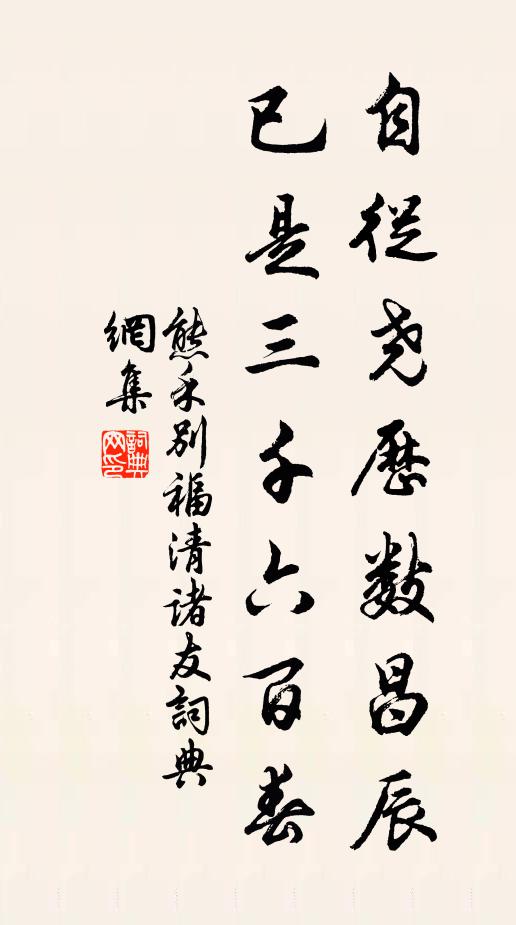 自從尧歷數昌辰
已是三千六百春
熊禾別福清诸友詞典
網集
詞典網印